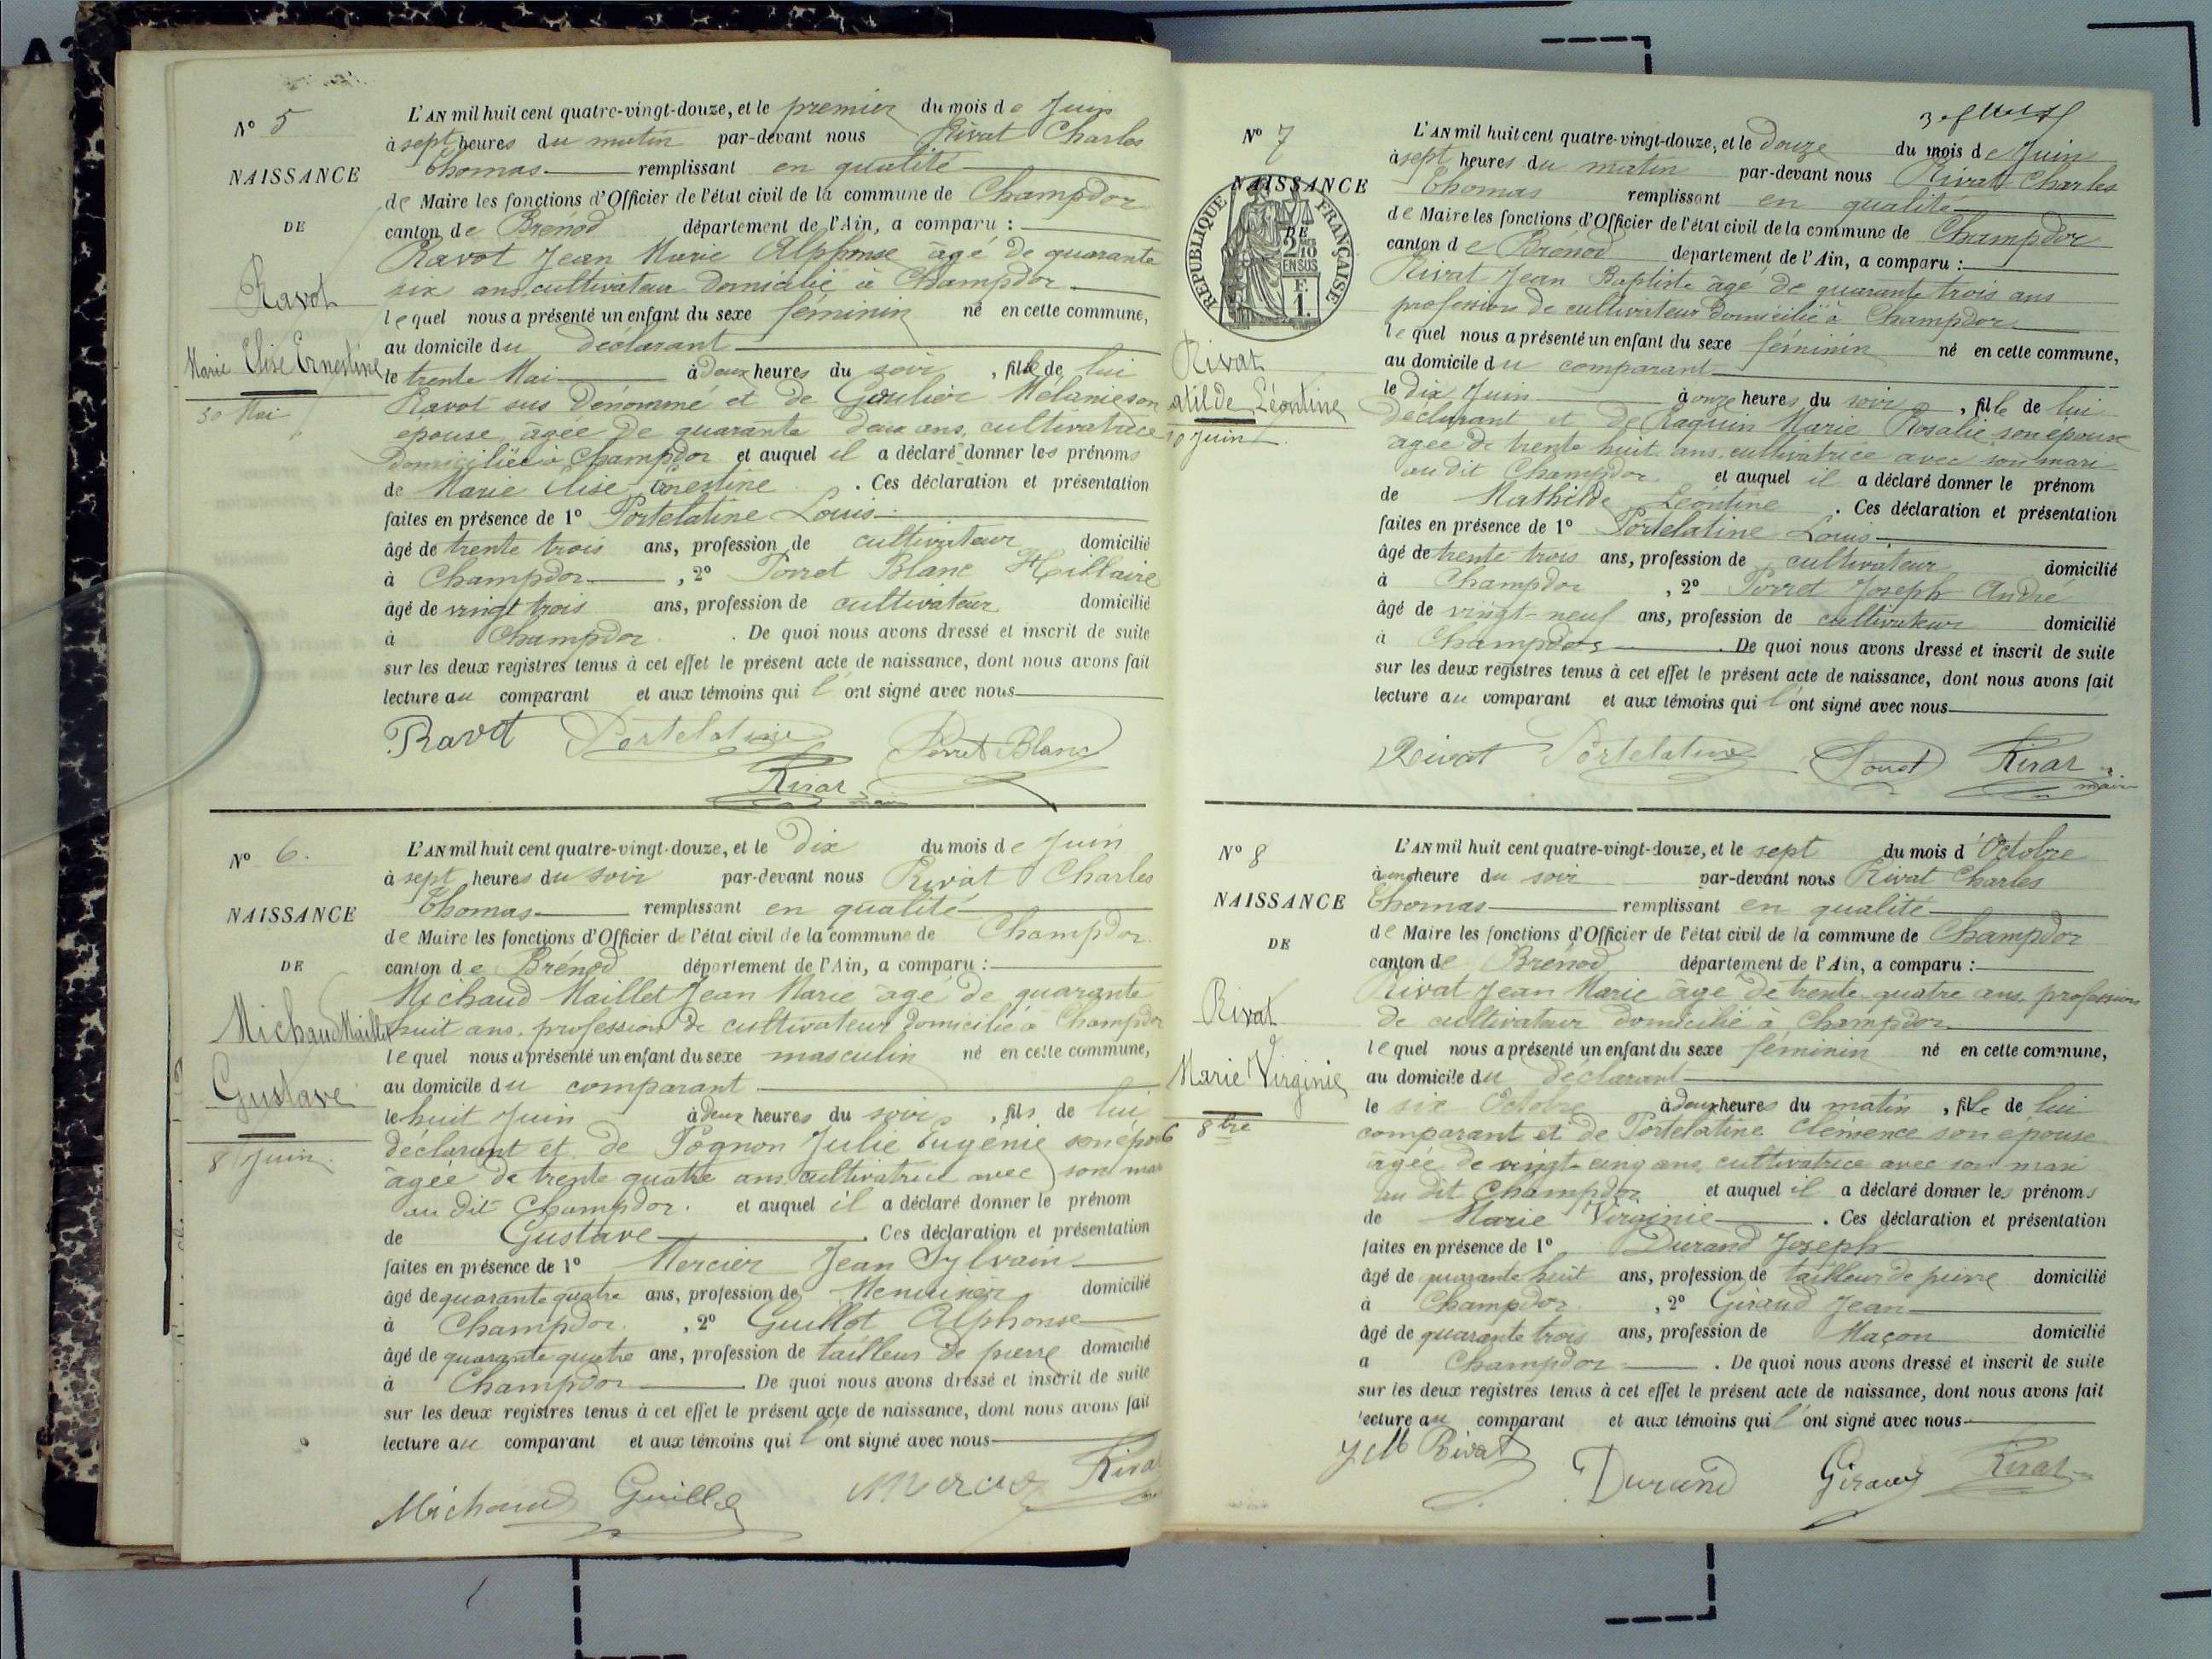 N° 5
NAISSANCE
DE
Ravot
Marie Elise Ernestine
30 Mai
L'AN mil huit cent quatre-vingt-douze, et le premier du mois de Juin
à sept heures du matin par-devant nous Rivat Charles
Thomas remplissant en qualité
de Maire les fonctions d'Officier de l'état civil de la commune de Champdor
canton de Brénod département de l'Ain, a comparu :
Ravot Jean Marie Alphonse âgé de quarante
six ans, cultivateur domicilié à Champdor
lequel nous a présenté un enfant du sexe féminin né en cette commune,
au domicile du déclarant
le trente Mai à deux heures du soir, fille de lui
Ravot sus dénommé et de Mélanie son
épouse âgée de quarante deux ans, cultivatrice
domiciliée à Champdor et auquel il a déclaré donner les prénoms
de Marie Elise Ernestine. Ces déclaration et présentation
faites en présence de 1° Portelatine Louis
âgé de trente trois ans, profession de cultivateur domicilié
à Champdor, 2° Porret Blanc Hillaire
âgé de vingt trois ans, profession de cultivateur domicilié
à Champdor. De quoi nous avons dressé et inscrit de suite
sur les deux registres tenus à cet effet le présent acte de naissance, dont nous avons fait
lecture au comparant et aux témoins qui l'ont signé avec nous
Ravot Portelatine Porret Blanc
Rivat
N° 6.
NAISSANCE
DE
Michaud Maillet
Gustave
8 Juin.
L'AN mil huit cent quatre-vingt-douze, et le dix du mois de Juin
à sept heures du soir par-devant nous Rivat Charles
Thomas remplissant en qualité
de Maire les fonctions d'Officier de l'état civil de la commune de Champdor
canton de Brénod département de l'Ain, a comparu :
Michaud Maillet Jean Marie âgé de quarante
huit ans, profession de cultivateur domicilié à Champdor
lequel nous a présenté un enfant du sexe masculin né en cette commune,
au domicile du comparant
le huit Juin à deux heures du soir, fils de lui
déclarant et de Pognon Julie Eugénie son
âgée de trente quatre ans cultivatrice avec son
au dit Champdor. et auquel il a déclaré donner le prénom
de Gustave. Ces déclaration et présentation
faites en présence de 1° Mercier Jean Sylvain
âgé de quarante quatre ans, profession de Menuisier domicilié
à Champdor, 2° Guillot Alphonse
âgé de quarante quatre ans, profession de tailleur de pierre domicilié
à Champdor. De quoi nous avons dressé et inscrit de suite
sur les deux registres tenus à cet effet le présent acte de naissance, dont nous avons fait
lecture au comparant et aux témoins qui l'ont signé avec nous
Michaud Guillot Mercier Rivat
N° 7
NAISSANCE
RÉPUBLIQUE FRANÇAISE
2/10 EN SUS
F. 1.
Rivat
Léontine
10 Juin
L'AN mil huit cent quatre-vingt-douze, et le douze du mois de Juin
à sept heures du matin par-devant nous Rivat Charles
Thomas remplissant en qualité
de Maire les fonctions d'Officier de l'état civil de la commune de Champdor
canton de Brénod département de l'Ain, a comparu :
Rivat Jean Baptiste âgé de quarante trois ans
profession de cultivateur domicilié à Champdor
lequel nous a présenté un enfant du sexe féminin né en cette commune,
au domicile du comparant
le dix Juin à onze heures du soir, fille de lui
déclarant et de Raquin Marie Rosalie son épouse
âgée de trente huit ans, cultivatrice avec son mari
au dit Champdor et auquel il a déclaré donner le prénom
de Mathilde Léontine. Ces déclaration et présentation
faites en présence de 1° Portelatine Louis
âgé de trente trois ans, profession de cultivateur domicilié
à Champdor, 2° Porret Joseph André
âgé de vingt-neuf ans, profession de cultivateur domicilié
à Champdor. De quoi nous avons dressé et inscrit de suite
sur les deux registres tenus à cet effet le présent acte de naissance, dont nous avons fait
lecture au comparant et aux témoins qui l'ont signé avec nous
Rivat Portelatine Porret Rivat
maire
N° 8
NAISSANCE
DE
Rivat
Marie Virginie
6 8bre
L'AN mil huit cent quatre-vingt-douze, et le sept du mois d'Octobre
à une heure du soir par-devant nous Rivat Charles
Thomas remplissant en qualité
de Maire les fonctions d'Officier de l'état civil de la commune de Champdor
canton de Brénod département de l'Ain, a comparu :
Rivat Jean Marie âgé de trente quatre ans profession
de cultivateur domicilié à Champdor
lequel nous a présenté un enfant du sexe féminin né en cette commune,
au domicile du déclarant
le six Octobre à deux heures du matin, fille de lui
comparant et de Portelatine Clémence son épouse
âgée de vingt-cinq ans, cultivatrice avec son mari
au dit Champdor et auquel il a déclaré donner les prénoms
de Marie Virginie. Ces déclaration et présentation
faites en présence de 1° Durand Joseph
âgé de quarante huit ans, profession de tailleur de pierre domicilié
à Champdor, 2° Giraud Jean
âgé de quarante trois ans, profession de Maçon domicilié
à Champdor. De quoi nous avons dressé et inscrit de suite
sur les deux registres tenus à cet effet le présent acte de naissance, dont nous avons fait
lecture au comparant et aux témoins qui l'ont signé avec nous
J M Rivat Durand Giraud Rivat